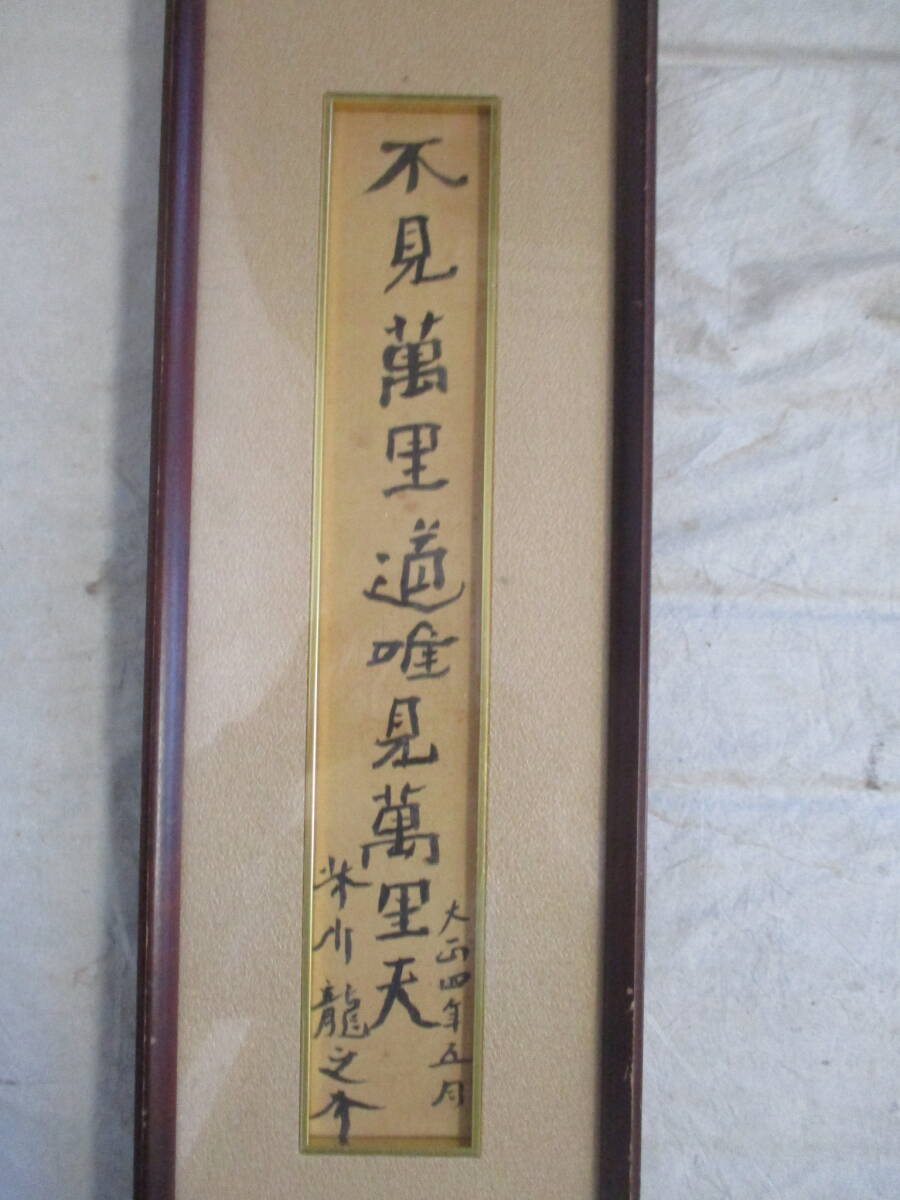 大正四年五月
不見萬里道唯見萬里天
芥川龍之介